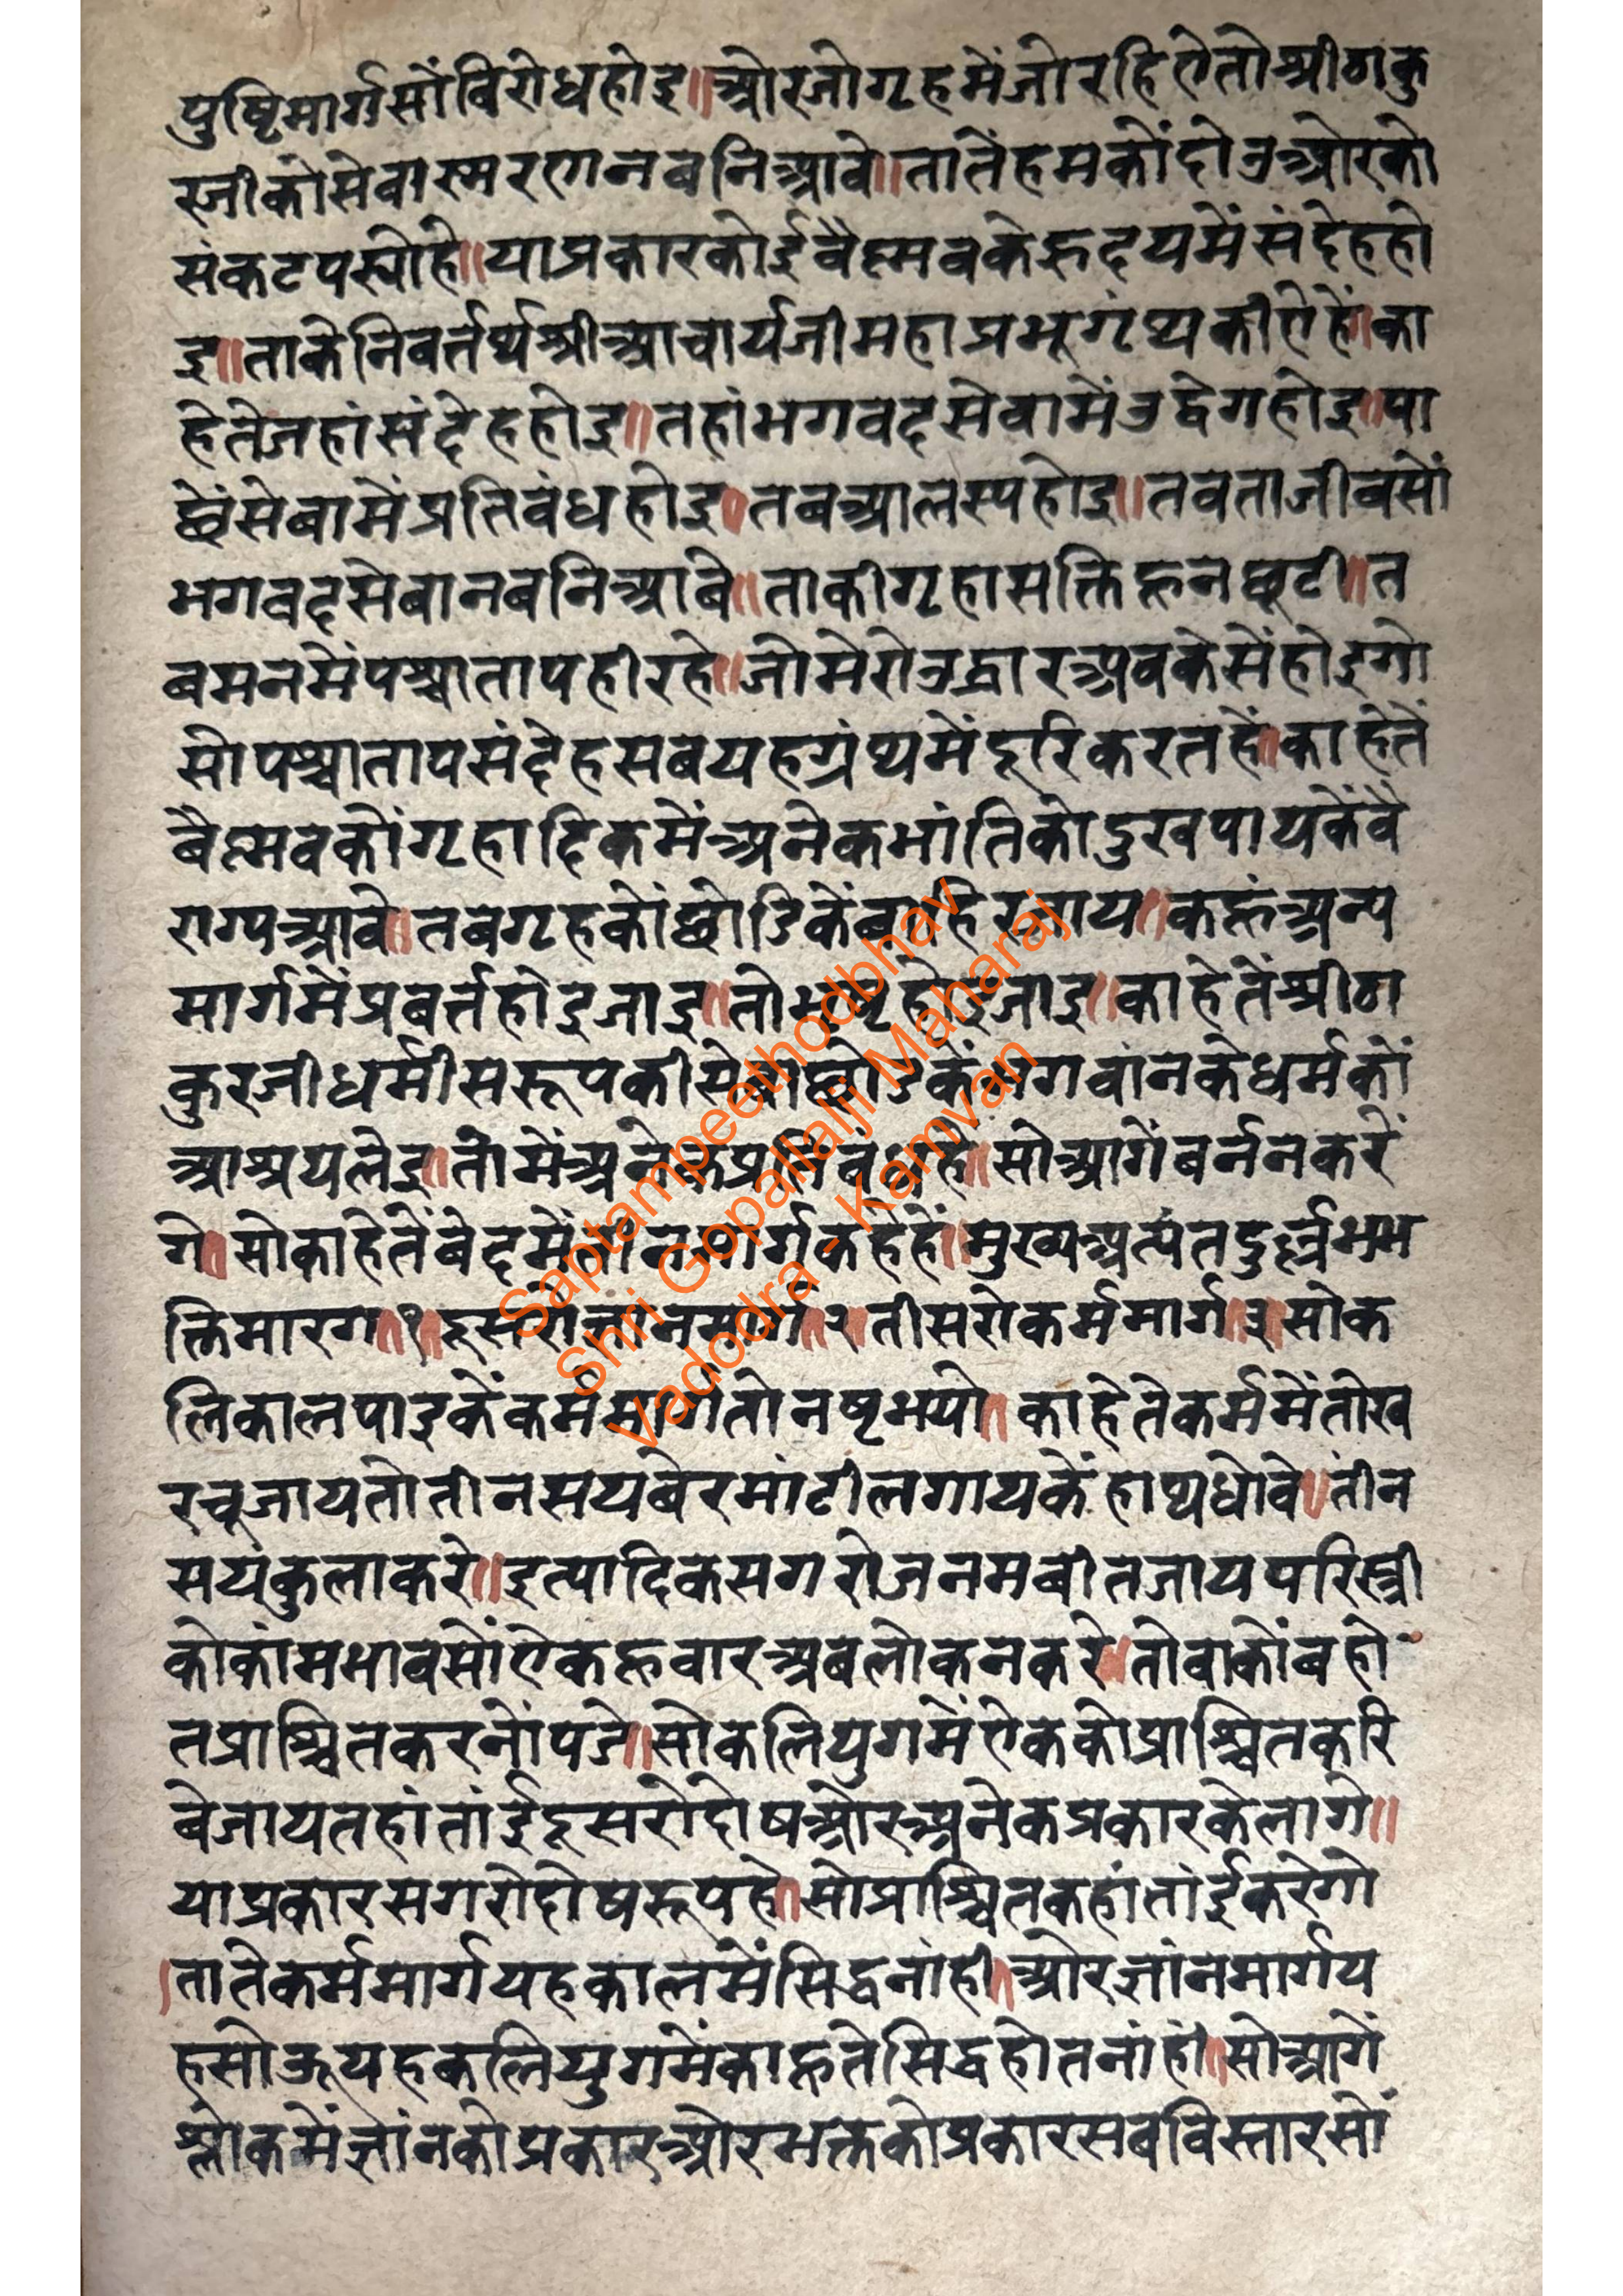 पुष्टिमार्गसोंविरोधहोइ॥ओरजोगृहमेंजोरहिऐतोश्रीठाकु
रजीकीसेवास्मरणनबनिआवे॥तातेंहमकोंदोउओरको
संकटपस्योहे॥याप्रकारकोईवैष्णवकेहृदयमेंसंदेहहो
इ॥ताकेनिवर्तर्थश्रीआचार्यजीमहाप्रभूग्रंथकीऐहें॥का
हेतेजहांसंदेहहोइ॥तहांभगवदसेवामेंउद्वेगहोइ॥पा
छेंसेवामेंप्रतिबंधहोइ॥तबआलस्यहोइ॥तबताजीवसों
भगवदसेवानबनिआवे॥ताकीगृहासक्तिहूनछूटी॥त
बमनमेंपश्चातापहीरहे॥जोमेरोउद्धारअबकेसेंहोइगो
सोपश्चातापसंदेहसबयहग्रंथमेंदूरिकरतहें॥काहेतें
वैष्णवकोंगृहादिकमेंअनेकभांतिकोदुखपायकेंवै
राग्यआवे॥तबगृहकोंछोडिकेंबाहिरजाय॥कहूंअन्य
मार्गमेंप्रवर्तहोइजाइ॥तोभ्रष्टहोइजाइ॥काहेतेंश्रीठा
कुरजीधर्मीसरूपकीसेवाछोडिकेंभगवांनकेधर्मकों
आश्रयलेइ॥तामेंअनेकप्रतिबंधहे॥सोआगेंबर्ननकरें
गे॥सोकाहेतेंबेदमेंतीनमार्गकहेहें॥मुख्यअत्यंतदुर्ल्लभभ
क्तिमारग॥१॥दूसरोज्ञानमार्ग॥२॥तीसरोकर्ममार्ग॥३॥सोक
लिकालपाइकेंकर्ममार्गतोनष्टभयो॥काहेतेकर्ममेंतोख
रचूजायतोतीनसयबेरमांटीलगायकेंहाथधोवे॥तीन
सयंकुलाकरे॥इत्यादिकसगरोजनमबीतजायपरिस्त्री
कोकांमभावसोंऐकहूवारअबलोकनकरे॥तोवाकोंबहो
तप्राश्चितकरनोंपजे॥सोकलियुगमेंऐककोप्राश्चितकरि
बेजायतहांतांईदूसरोदोषओरअनेकप्रकारकेलागे॥
याप्रकारसगरोदोषरूपहे॥सोप्राश्चितकहांतांईकरेगो
॥तातेकर्ममार्गयहकालमेंसिद्धनांही॥ओरज्ञांनमार्गय
हसोऊयहकलियुगमेंकाहूतेसिद्धहोतनांहीं॥सोआगें
श्लोकमेंज्ञांनकोप्रकारओरभक्तकोप्रकारसबविस्तारसों
Saptampeethodbhav
Shri Gopallalji Maharaj
Vadodra - Kamvan